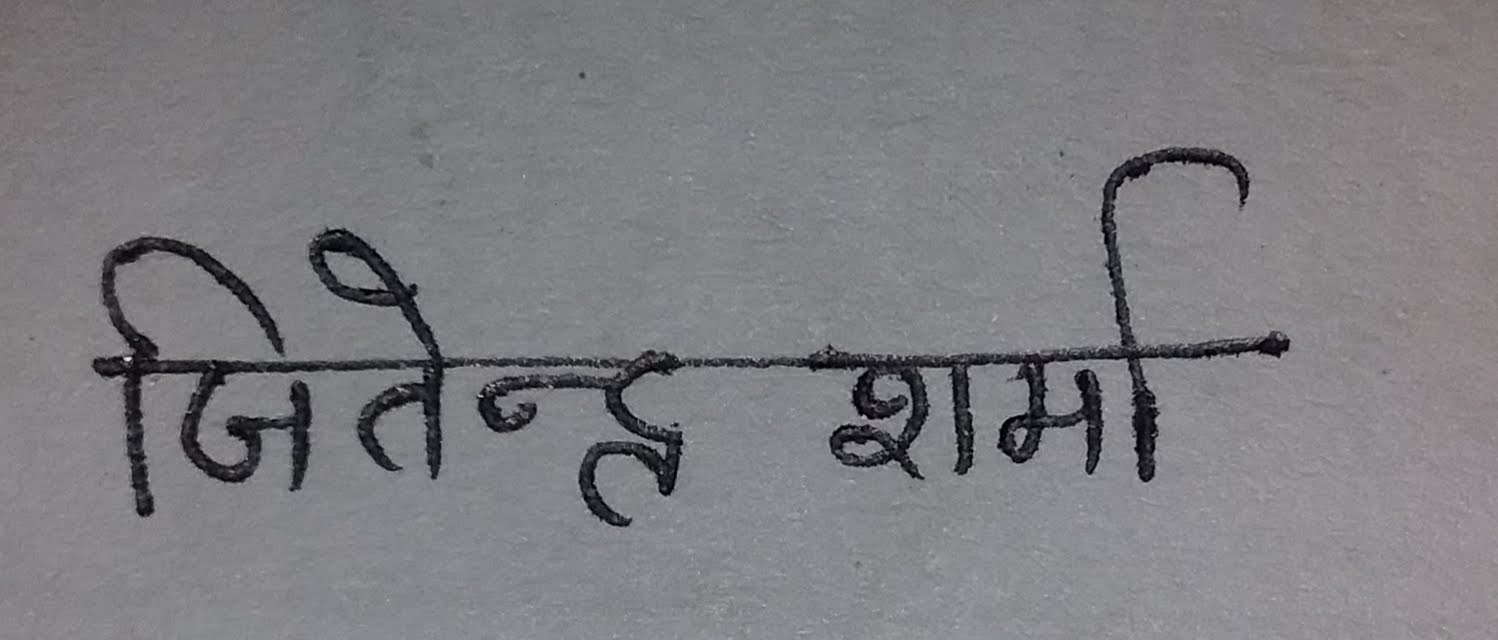 जितेन्द्र शर्मा